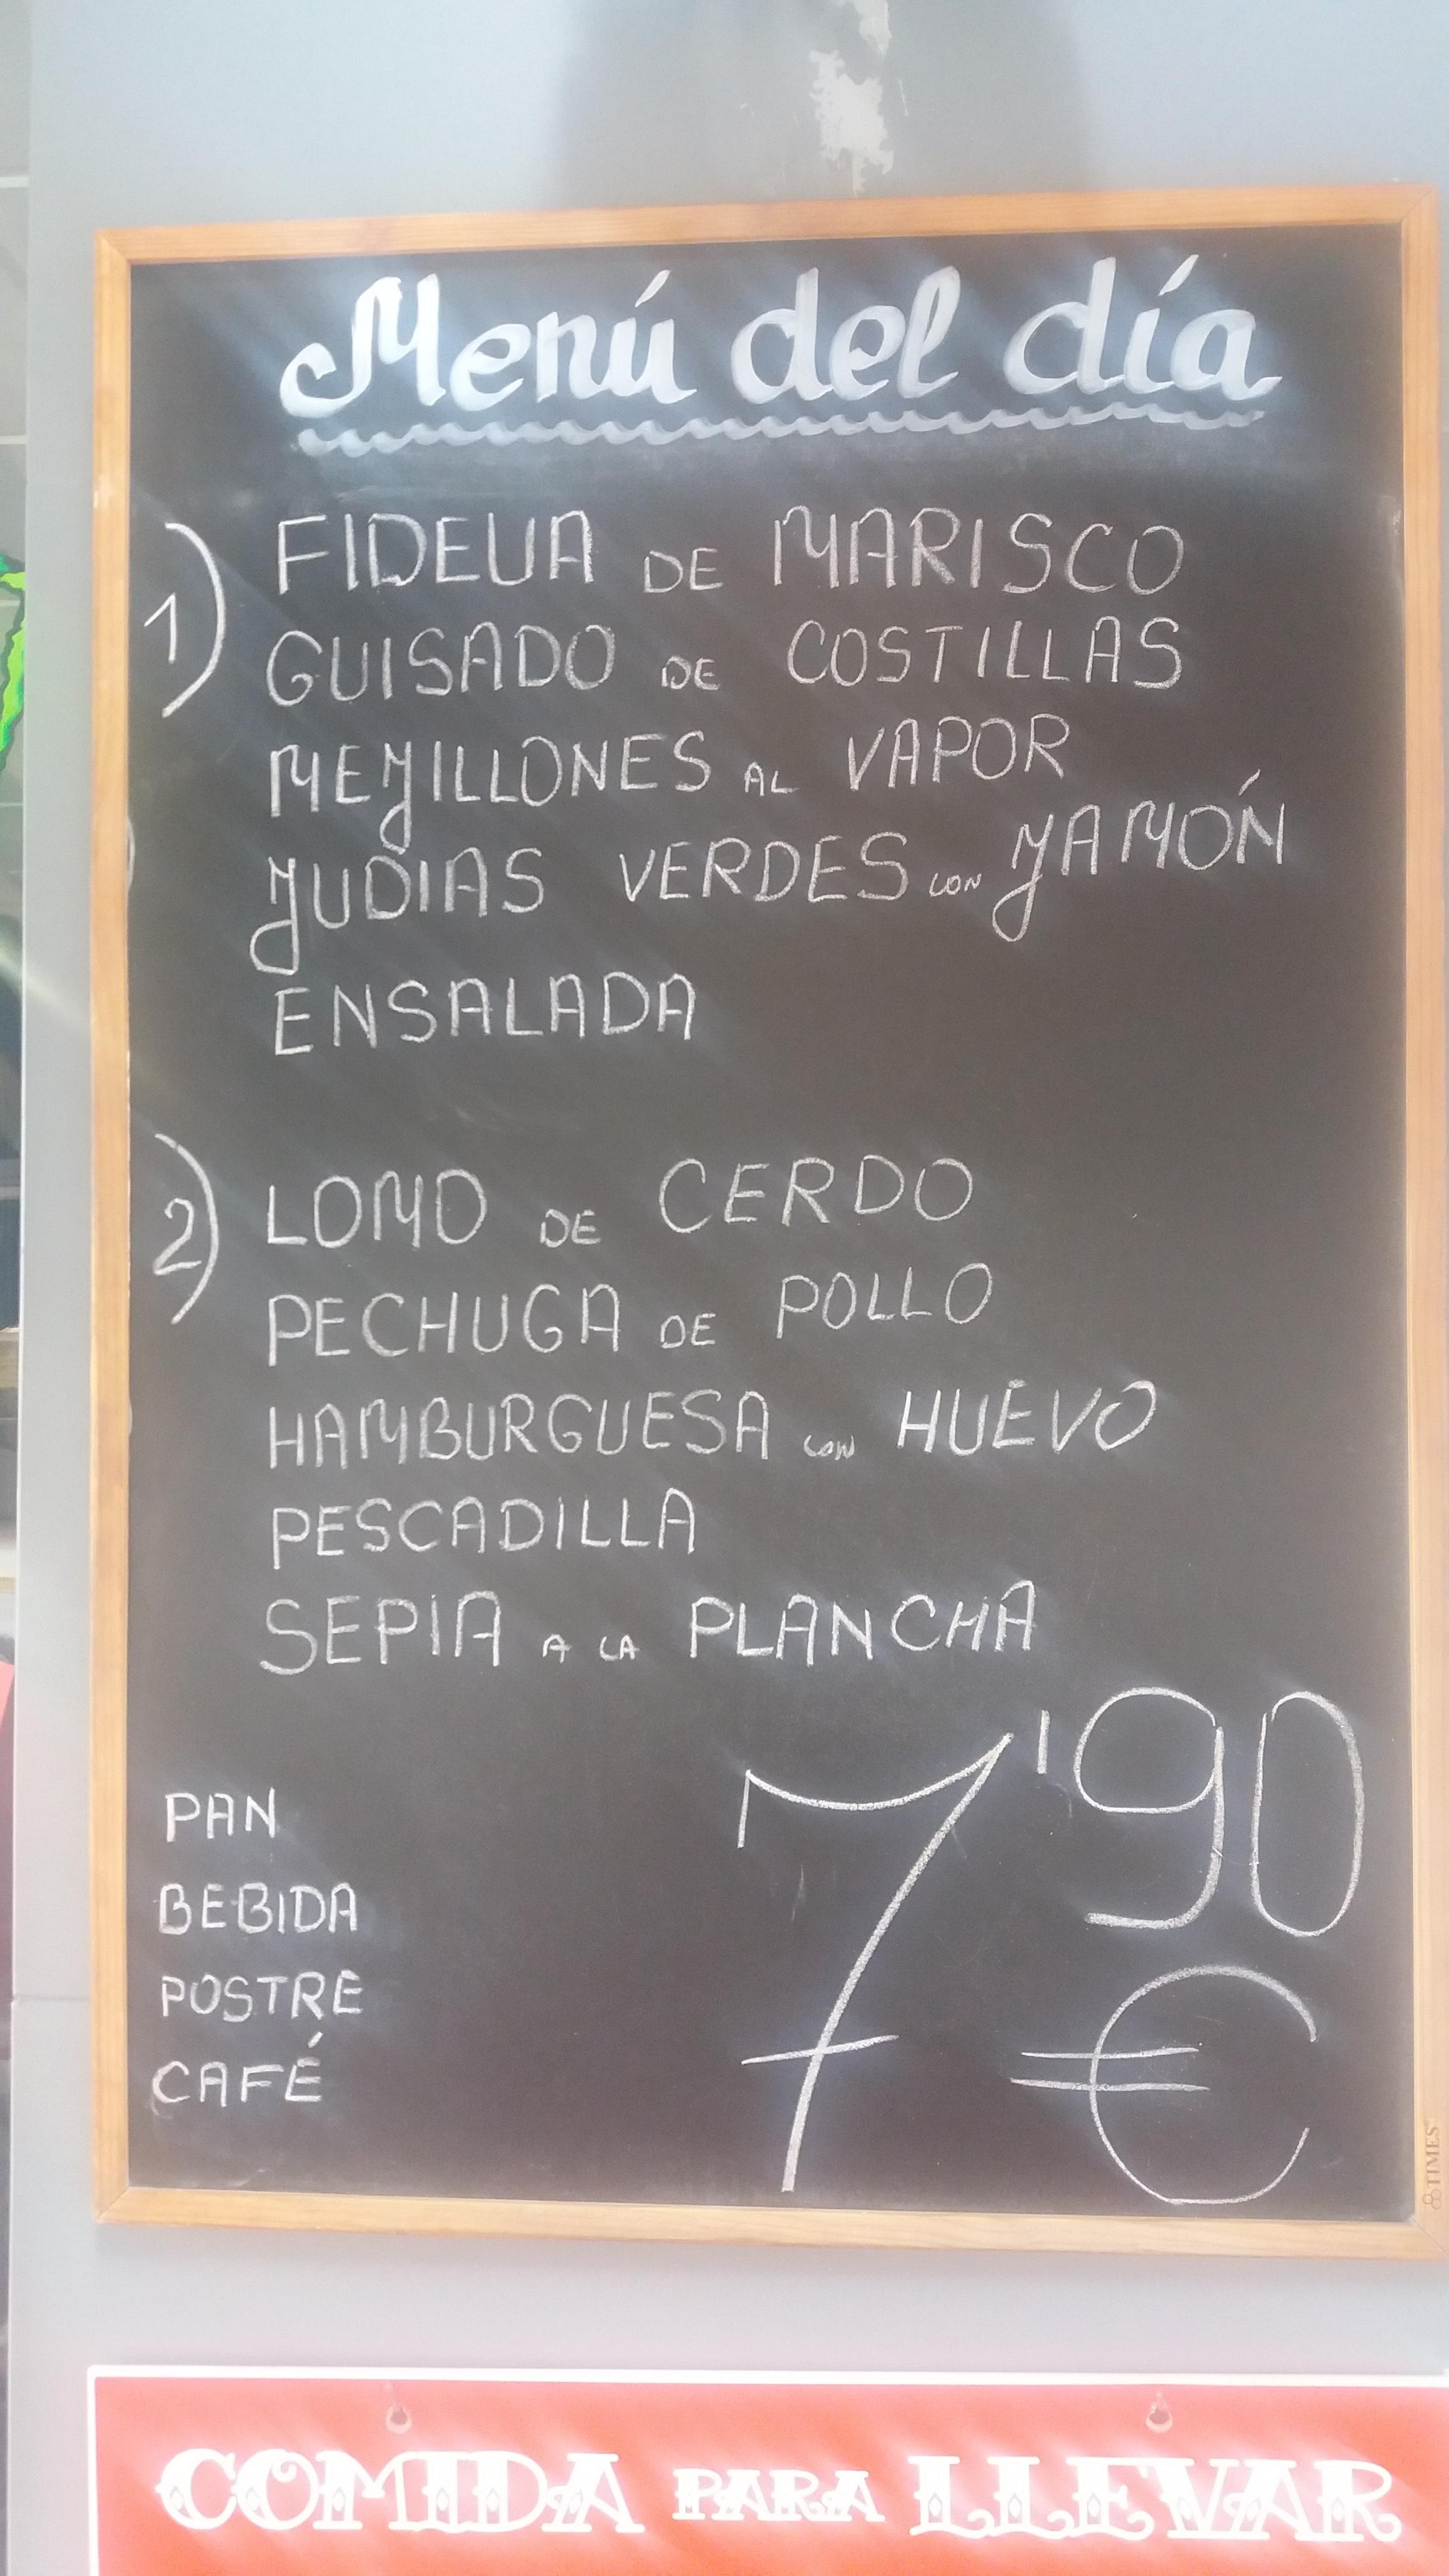 Menú del día
1) FIDEUA DE MARISCO
GUISADO DE COSTILLAS
MEJILLONES AL VAPOR
JUDIAS VERDES CON JAMÓN
ENSALADA
2) LOMO DE CERDO
PECHUGA DE POLLO
HAMBURGUESA CON HUEVO
PESCADILLA
SEPIA A LA PLANCHA
PAN
BEBIDA
POSTRE
CAFÉ
7'90
€
TIMES
COMIDA PARA LLEVAR